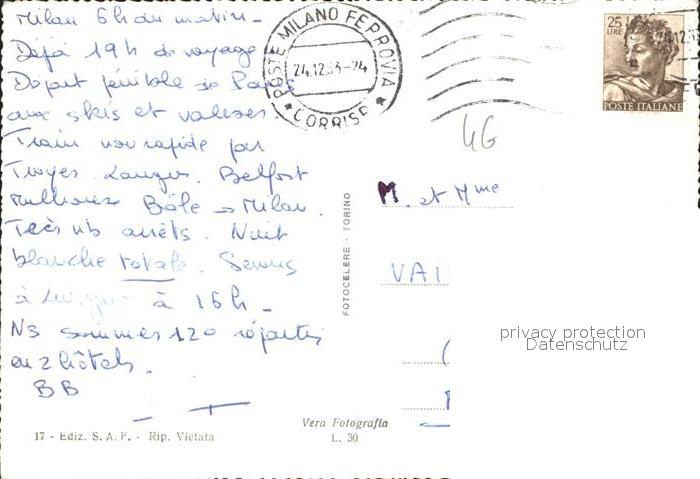 Milan 6h du matin -
Déjà 19h de voyage
Départ pénible de Paris
aux skis et valises.
Train non rapide par
Troyes. Langres. Belfort
Mulhouse Bâle → Milan.
Très nb arrêts. Nuit
blanche totale. Serons
à à 16h -
Ns sommes 120 répartis
en 2 hôtels.
BB
17 - Ediz. S. A. F. - Rip. Vietata
POSTE MILANO FERROVIA
24.12.63-24
* CORRISP *
25
LIRE
POSTE ITALIANE
24.12
4G
M. et Mme
VAI
FOTOCELERE - TORINO
privacy protection
Datenschutz
Vera Fotografia
L. 30